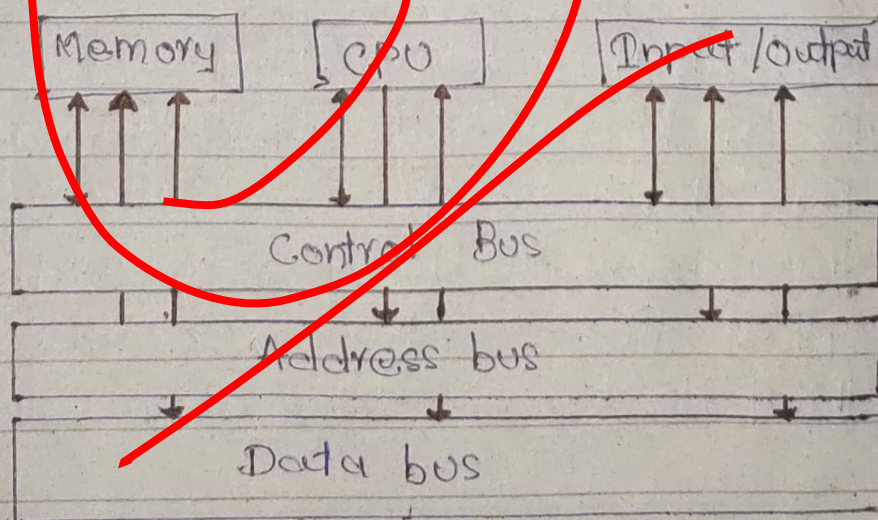 Memory CPU Input/Output
Control Bus
Address bus
Data bus